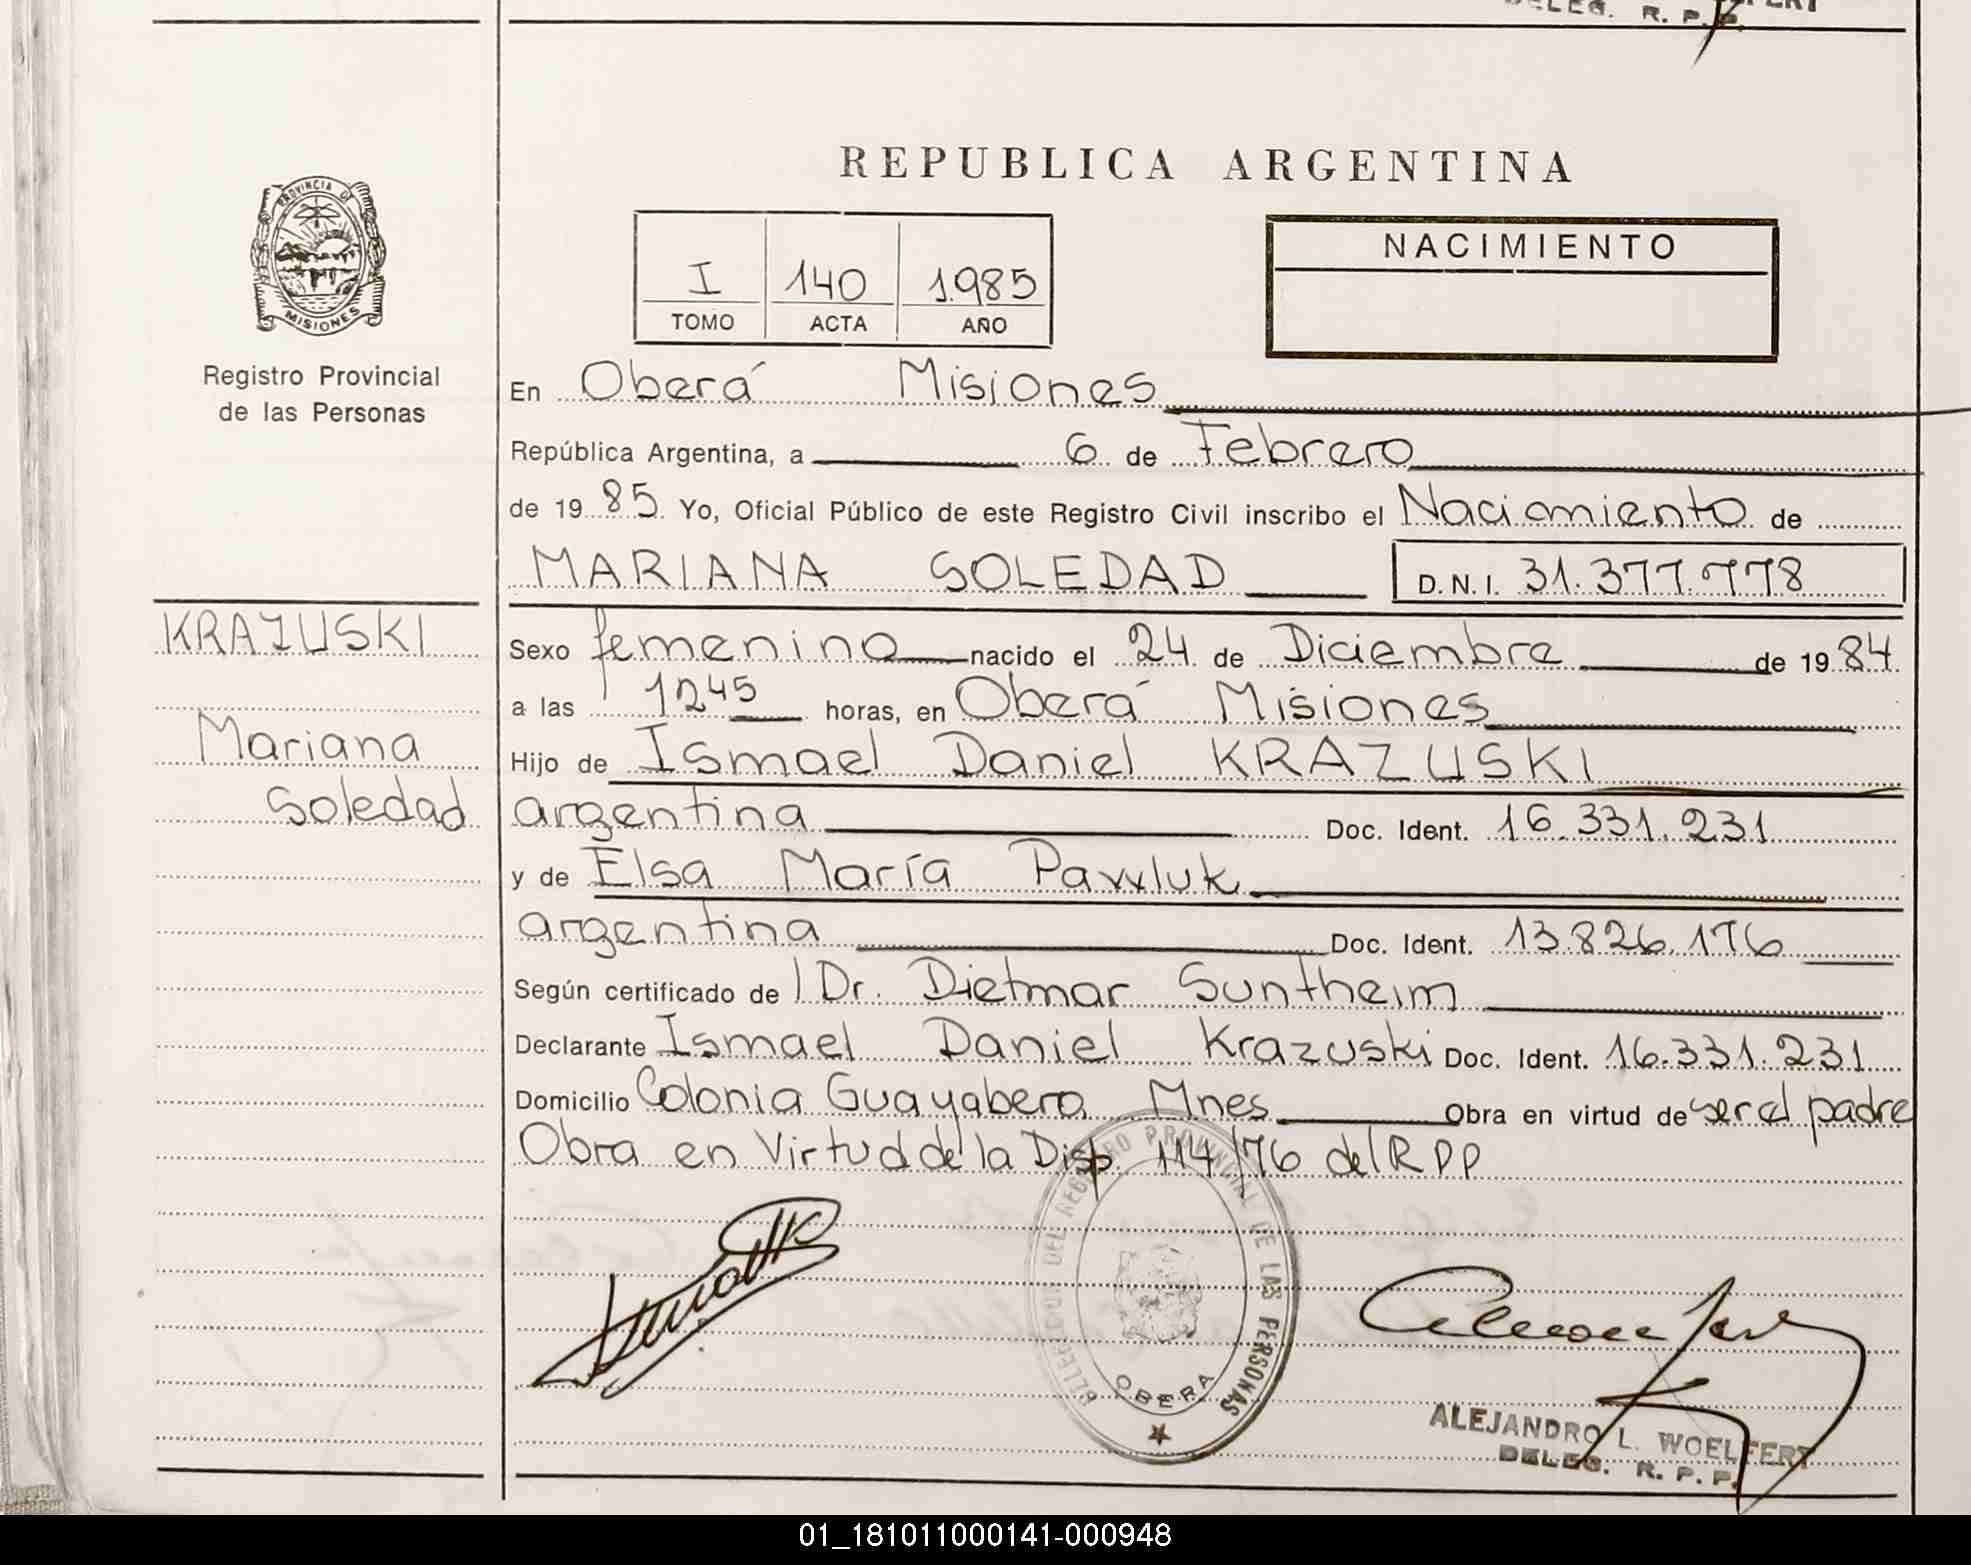 DELEG. R. P. P.
REPUBLICA ARGENTINA
PROVINCIA DE
MISIONES
Registro Provincial
de las Personas
I 140 1.985
TOMO ACTA AÑO
NACIMIENTO
En Oberá Misiones
República Argentina, a 6 de Febrero
de 19 85 Yo, Oficial Público de este Registro Civil inscribo el Nacimiento de
MARIANA SOLEDAD D.N.I. 31.377.778
KRAZUSKI
Mariana
Soledad
Sexo femenino nacido el 24 de Diciembre de 19 84
a las 12 45 horas, en Oberá Misiones
Hijo de Ismael Daniel KRAZUSKI
argentina Doc. Ident. 16.331.231
y de Elsa María Pawluk
argentina Doc. Ident. 13.826.176
Según certificado de Dr. Dietmar Suntheim
Declarante Ismael Daniel Krazuski Doc. Ident. 16.331.231
Domicilio Colonia Guayabera Mnes Obra en virtud de ser el padre
Obra en Virtud de la Disp 114/76 del R P P
DELEGACION DEL REGISTRO PROVINCIAL DE LAS PERSONAS
OBERA
ALEJANDRO L. WOELFERT
DELEG. R. P. P.
01_181011000141-000948